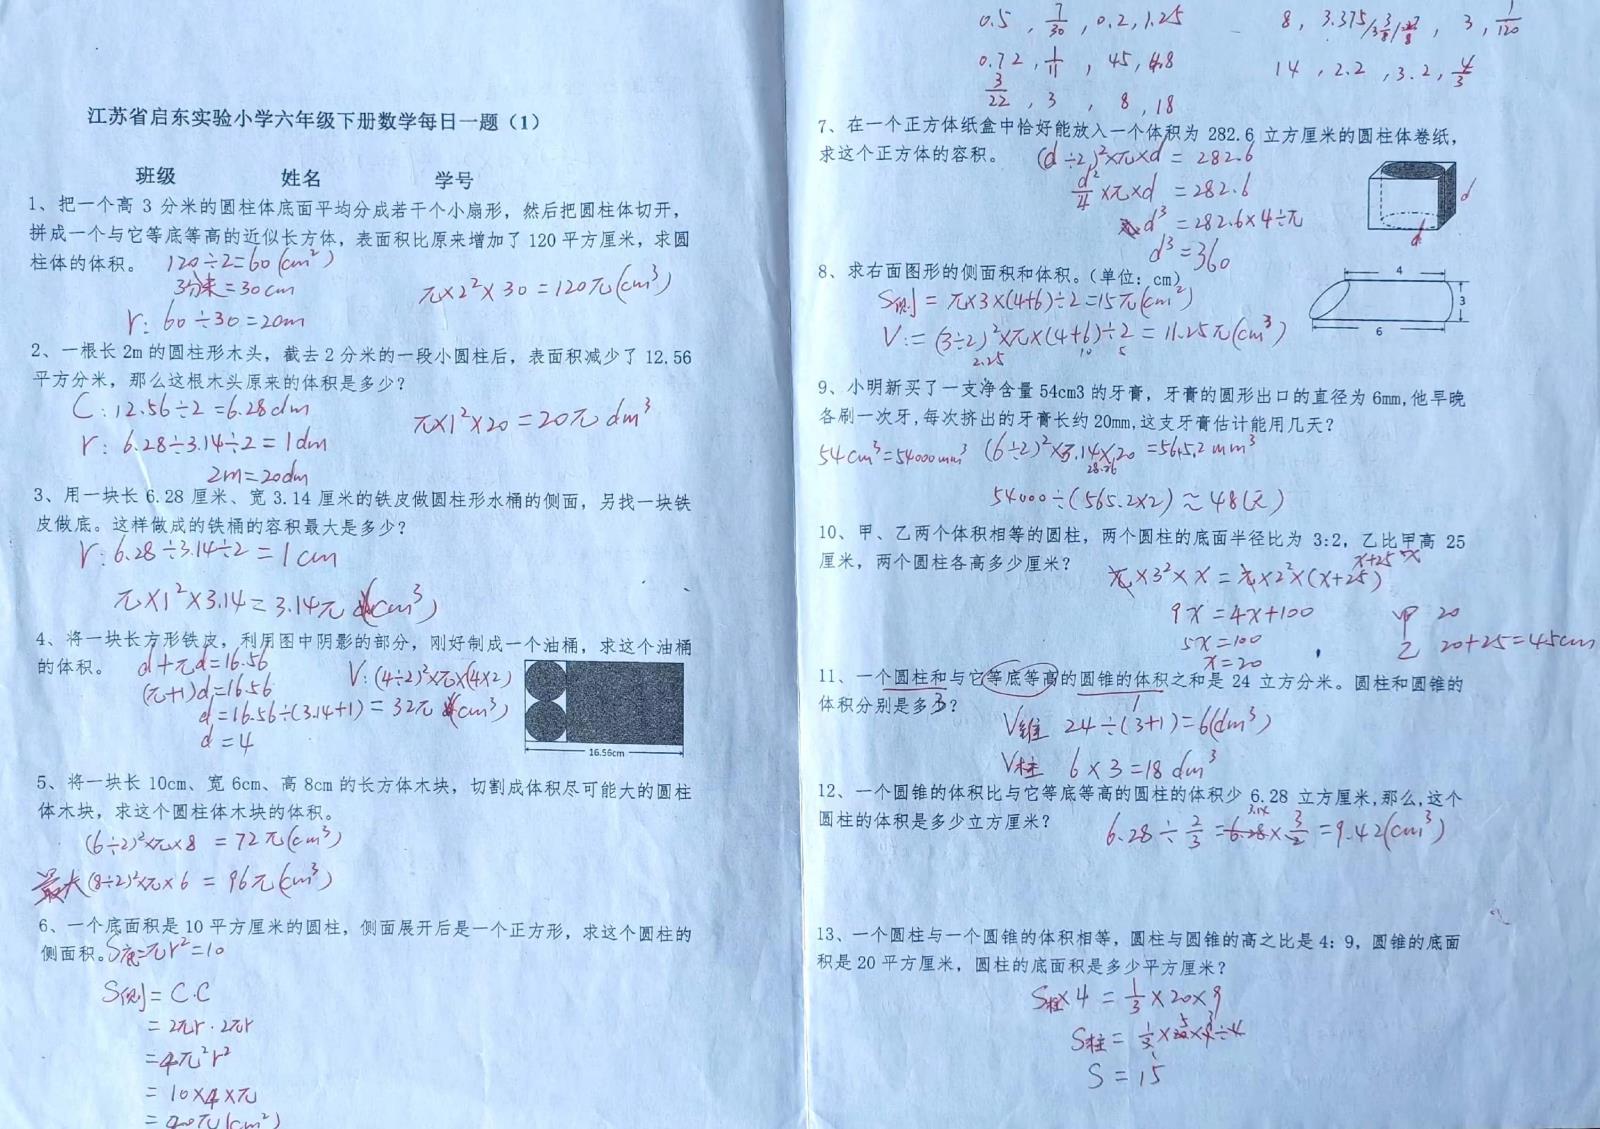 江苏省启东实验小学六年级下册数学每日一题（1）
班级 姓名 学号
1、把一个高 3 分米的圆柱体底面平均分成若干个小扇形，然后把圆柱体切开，
拼成一个与它等底等高的近似长方体，表面积比原来增加了 120 平方厘米，求圆
柱体的体积。 120÷2=60(cm²)
3分米=30cm π×2²×30=120π(cm³)
r: 60÷30=2cm
2、一根长 2m 的圆柱形木头，截去 2 分米的一段小圆柱后，表面积减少了 12.56
平方分米，那么这根木头原来的体积是多少？
C: 12.56÷2=6.28dm π×1²×20=20π dm³
r: 6.28÷3.14÷2=1dm
2m=20dm
3、用一块长 6.28 厘米、宽 3.14 厘米的铁皮做圆柱形水桶的侧面，另找一块铁
皮做底。这样做成的铁桶的容积最大是多少？
r: 6.28÷3.14÷2=1cm
π×1²×3.14=3.14π (cm³)
4、将一块长方形铁皮，利用图中阴影的部分，刚好制成一个油桶，求这个油桶
的体积。 d+πd=16.56 V: (4÷2)²×π×(4×2)
(π+1)d=16.56
d=16.56÷(3.14+1) =32π (cm³)
d=4
16.56cm
5、将一块长 10cm、宽 6cm、高 8cm 的长方体木块，切割成体积尽可能大的圆柱
体木块，求这个圆柱体木块的体积。
(6÷2)²×π×8 =72π(cm³)
最大 (8÷2)²×π×6 =96π(cm³)
6、一个底面积是 10 平方厘米的圆柱，侧面展开后是一个正方形，求这个圆柱的
侧面积。S底=πr²=10
S侧=C·C
=2πr·2πr
=4π²r²
=10×4×π
=40π(cm²)
0.5 , 7/30 , 0.2, 1.25 8, 3.375/3 3/8/27/8 , 3, 1/120
0.72, 1/11 , 45, 4.8 14, 2.2, 3.2, 4/3
3/22 , 3 , 8, 18
7、在一个正方体纸盒中恰好能放入一个体积为 282.6 立方厘米的圆柱体卷纸，
求这个正方体的容积。 (d÷2)²×π×d=282.6
d²/4×π×d =282.6
d³=282.6×4÷π
d³=360
d
d
8、求右面图形的侧面积和体积。（单位：cm）
S侧=π×3×(4+6)÷2=15π(cm²)
V:=(3÷2)²×π×(4+6)÷2=11.25π(cm³)
2.25 10 5
4
3
6
9、小明新买了一支净含量 54cm3 的牙膏，牙膏的圆形出口的直径为 6mm,他早晚
各刷一次牙,每次挤出的牙膏长约 20mm,这支牙膏估计能用几天？
54cm³=54000mm³ (6÷2)²×3.14×20=565.2mm³
28.26
54000÷(565.2×2)≈48(天)
10、甲、乙两个体积相等的圆柱，两个圆柱的底面半径比为 3:2，乙比甲高 25
厘米，两个圆柱各高多少厘米？ x+25 x
π×3²×x=π×2²×(x+25)
9x=4x+100 甲 20
5x=100 乙 20+25=45cm
x=20
11、一个圆柱和与它等底等高的圆锥的体积之和是 24 立方分米。圆柱和圆锥的
体积分别是多少？ 3 1
V锥 24÷(3+1)=6(dm³)
V柱 6×3=18dm³
12、一个圆锥的体积比与它等底等高的圆柱的体积少 6.28 立方厘米,那么,这个
圆柱的体积是多少立方厘米？ 3.14
6.28÷2/3=6.28×3/2=9.42(cm³)
13、一个圆柱与一个圆锥的体积相等，圆柱与圆锥的高之比是 4：9，圆锥的底面
积是 20 平方厘米，圆柱的底面积是多少平方厘米？
S柱×4=1/3×20×9
S柱=1/3×20×9÷4
S=15